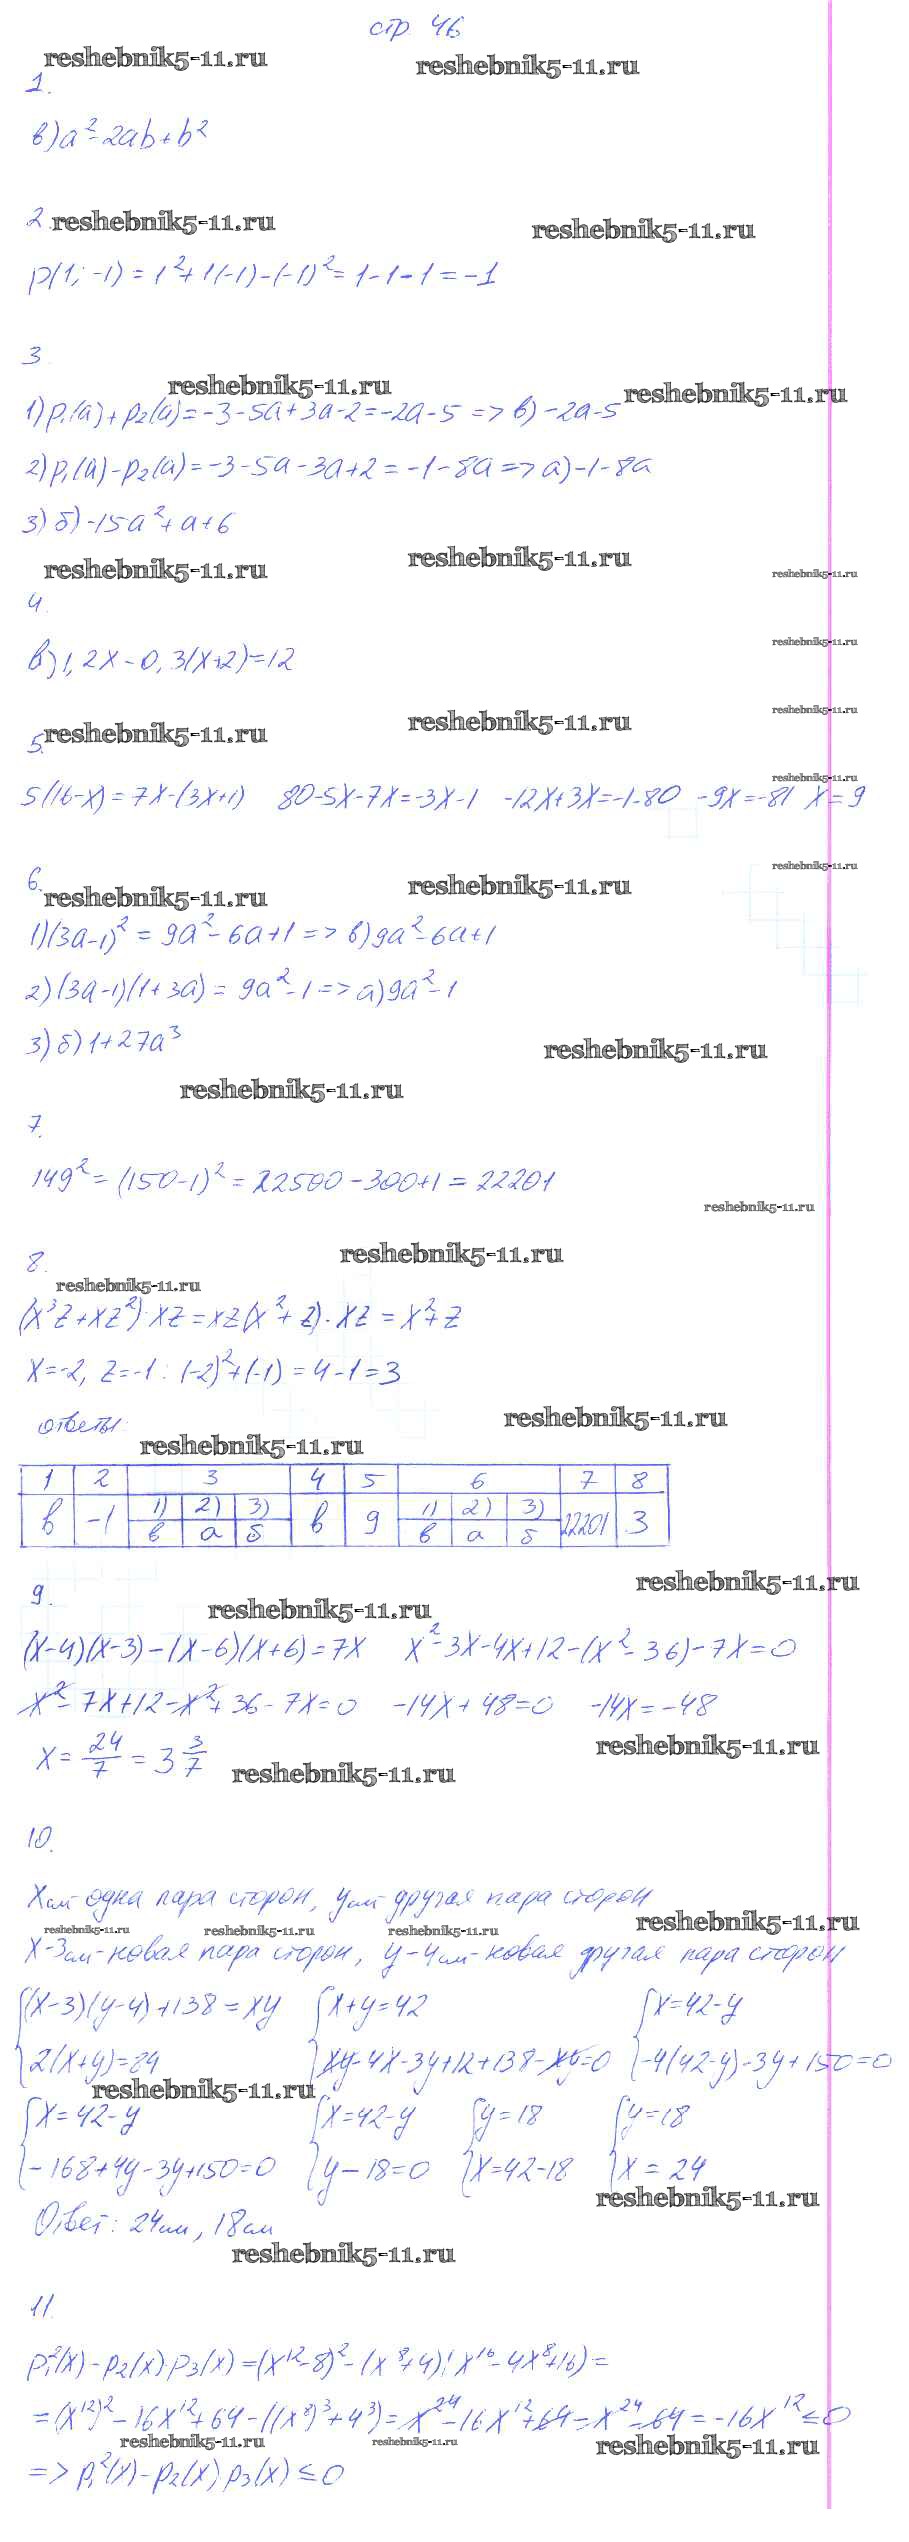 стр. 46
reshebnik5-11.ru reshebnik5-11.ru
1.
в) a² - 2ab + b²
2. reshebnik5-11.ru reshebnik5-11.ru
p(1; -1) = 1² + 1(-1) - (-1)² = 1 - 1 - 1 = -1
3.
reshebnik5-11.ru reshebnik5-11.ru
1) p₁(a) + p₂(a) = -3 - 5a + 3a - 2 = -2a - 5 => в) -2a - 5
2) p₁(a) - p₂(a) = -3 - 5a - 3a + 2 = -1 - 8a => а) -1 - 8a
3) б) -15a² + a + 6
reshebnik5-11.ru reshebnik5-11.ru reshebnik5-11.ru
4.
reshebnik5-11.ru
в) 1,2x - 0,3(x+2) = 12
reshebnik5-11.ru reshebnik5-11.ru
5. reshebnik5-11.ru
reshebnik5-11.ru
5(16-x) = 7x - (3x+1) 80-5x-7x=-3x-1 -12x+3x=-1-80 -9x=-81 x=9
reshebnik5-11.ru
6. reshebnik5-11.ru reshebnik5-11.ru
1) (3a-1)² = 9a² - 6a + 1 => в) 9a² - 6a + 1
2) (3a-1)(1+3a) = 9a² - 1 => а) 9a² - 1
3) б) 1 + 27a³
reshebnik5-11.ru
reshebnik5-11.ru
7.
149² = (150-1)² = 22500 - 300 + 1 = 22201
reshebnik5-11.ru
8. reshebnik5-11.ru
reshebnik5-11.ru
(x³z + xz²) · xz = xz(x² + z) · xz = x² + z
x=-2, z=-1 : (-2)² + (-1) = 4 - 1 = 3
ответы: reshebnik5-11.ru
reshebnik5-11.ru
1 2 3 4 5 6 7 8
в -1 1) 2) 3) в 9 1) 2) 3) 22201 3
в а б в а б
reshebnik5-11.ru
9. reshebnik5-11.ru
(x-4)(x-3) - (x-6)(x+6) = 7x x² - 3x - 4x + 12 - (x² - 36) - 7x = 0
x² - 7x + 12 - x² + 36 - 7x = 0 -14x + 48 = 0 -14x = -48
x = 24/7 = 3 3/7 reshebnik5-11.ru
reshebnik5-11.ru
10.
x см - одна пара сторон, y см - другая пара сторон
reshebnik5-11.ru reshebnik5-11.ru reshebnik5-11.ru reshebnik5-11.ru
x-3 см - новая пара сторон, y-4 см - новая другая пара сторон
{(x-3)(y-4)+138=xy {x+y=42 {x=42-y
{2(x+y)=84 {xy-4x-3y+12+138-xy=0 {-4(42-y)-3y+150=0
reshebnik5-11.ru
{x=42-y {x=42-y {y=18 {y=18
{-168+4y-3y+150=0 {y-18=0 {x=42-18 {x=24
reshebnik5-11.ru
Ответ: 24 см, 18 см
reshebnik5-11.ru
11.
p₁²(x) - p₂(x) · p₃(x) = (x¹² - 8)² - (x⁸ + 4)(x¹⁶ - 4x⁸ + 16) =
= (x¹²)² - 16x¹² + 64 - ((x⁸)³ + 4³) = x²⁴ - 16x¹² + 64 - x²⁴ - 64 = -16x¹² ≤ 0
reshebnik5-11.ru reshebnik5-11.ru reshebnik5-11.ru
=> p₁²(x) - p₂(x) p₃(x) ≤ 0